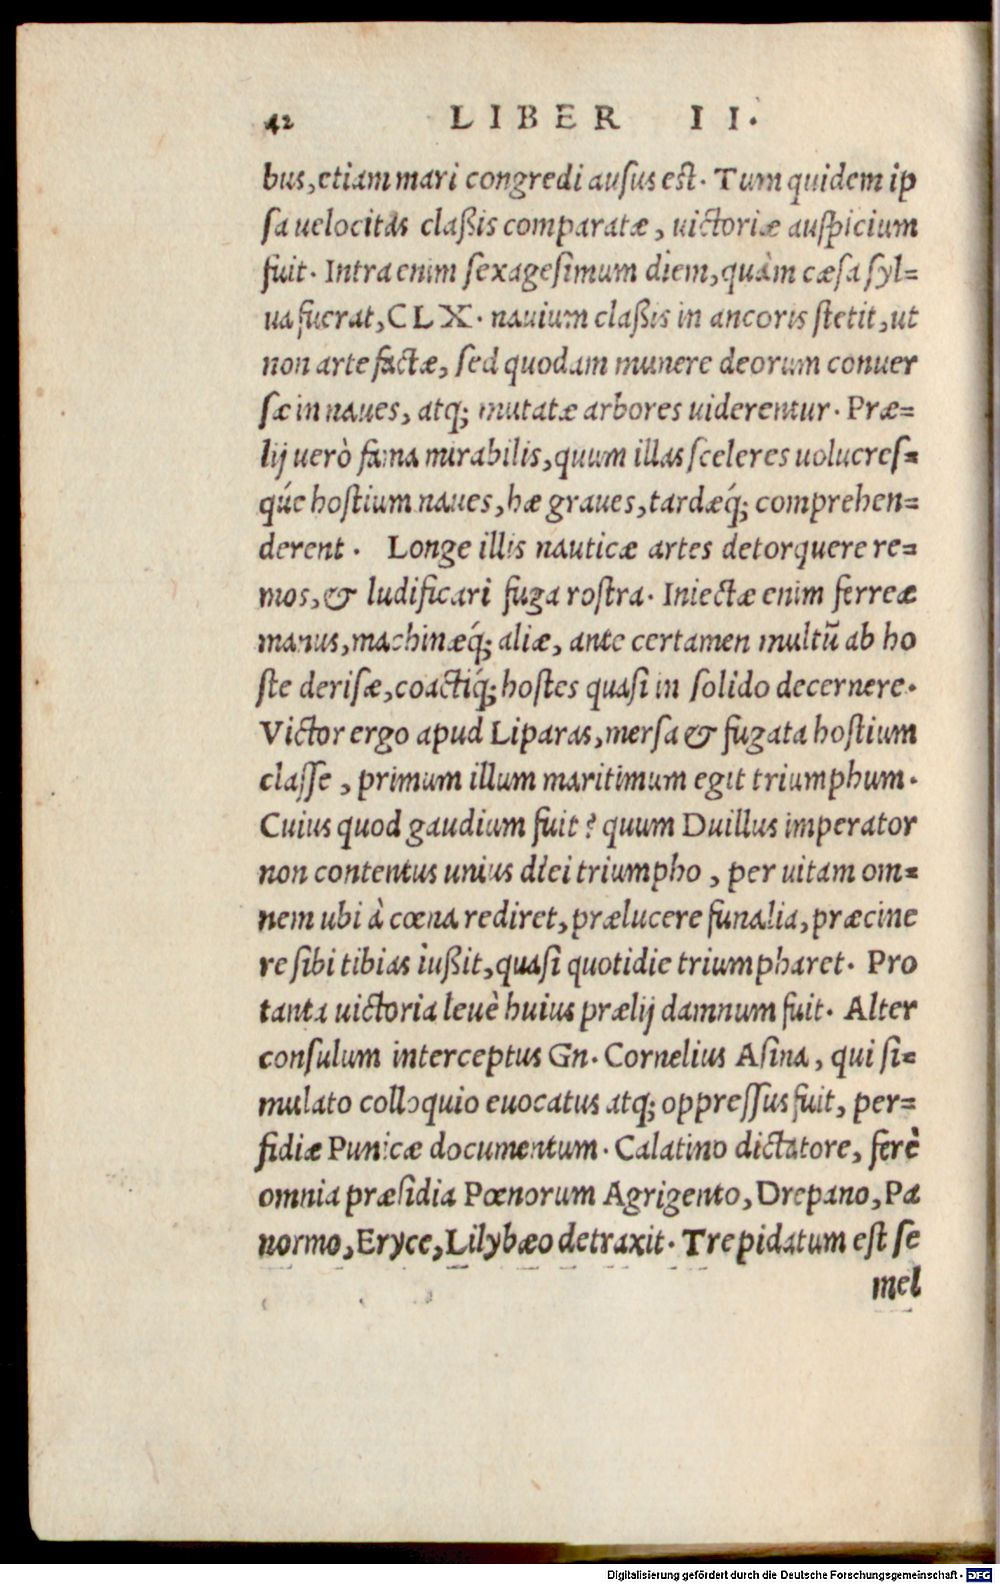 42 LIBER II.
bus, etiam mari congredi ausus est. Tum quidem ip
sa uelocitas claßis comparatæ, uictoriæ auspicium
fuit. Intra enim sexagesimum diem, quàm cæsa syl=
ua fuerat, CLX. nauium claßis in ancoris stetit, ut
non arte factæ, sed quodam munere deorum conuer
sæ in naues, atq; mutatæ arbores uiderentur. Præ=
lij uerò fama mirabilis, quum illas sceleres uolucres=
qúe hostium naues, hæ graues, tardæq́; comprehen=
derent. Longe illis nauticæ artes detorquere re=
mos, & ludificari fuga rostra. Iniectæ enim ferreæ
manus, machinæq́; aliæ, ante certamen multũ ab ho
ste derisæ, coactiq́; hostes quasi in solido decernere.
Victor ergo apud Liparas, mersa & fugata hostium
classe, primum illum maritimum egit triumphum.
Cuius quod gaudium fuit? quum Duillus imperator
non contentus unius diei triumpho, per uitam om=
nem ubi à cœna rediret, prælucere funalia, præcine
re sibi tibias iußit, quasi quotidie triumpharet. Pro
tanta uictoria leuè huius prælij damnum fuit. Alter
consulum interceptus Gn. Cornelius Asina, qui si=
mulato colloquio euocatus atq; oppressus fuit, per=
fidiæ Punicæ documentum. Calatino dictatore, ferè
omnia præsidia Pœnorum Agrigento, Drepano, Pa
normo, Eryce, Lilybæo detraxit. Trepidatum est se
mel
Digitalisierung gefördert durch die Deutsche Forschungsgemeinschaft - DFG